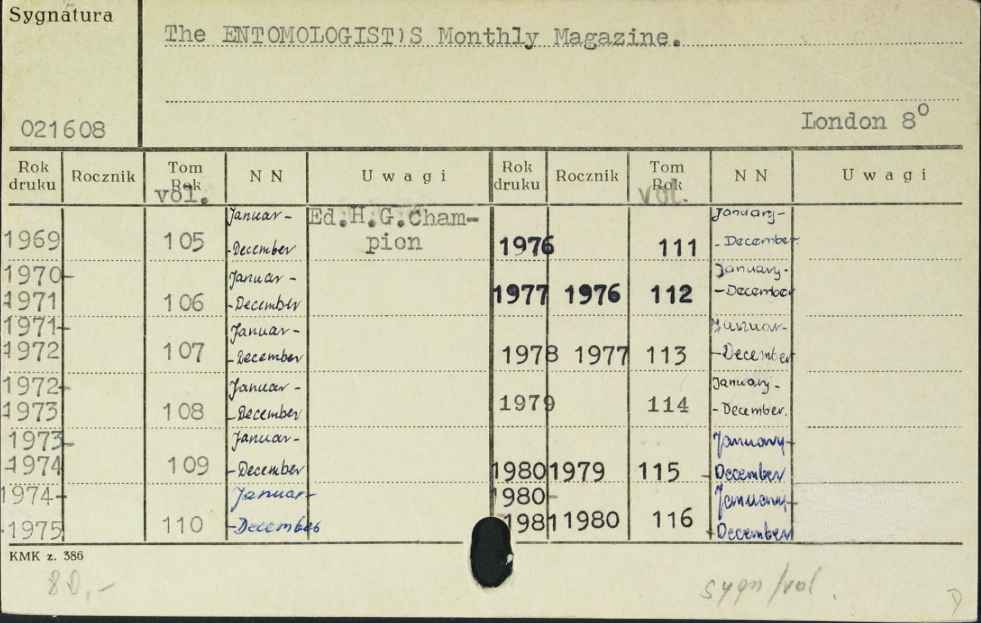 Sygnatura
The ENTOMOLOGIST)S Monthly Magazine.
021608
London 8⁰
Rok druku Rocznik Tom Rok vol. NN Uwagi Rok druku Rocznik Tom Rok vol. NN Uwagi
1969 105 Januar- -December Ed.H.G.Cham-pion
1970- -1971 106 Januar- -December
1971- -1972 107 Januar- -December
1972- -1973 108 Januar- -December
1973- -1974 109 Januar- -December
1974- -1975 110 Januar- -December
1976 111 January- -December
1977 1976 112 January- -December
1978 1977 113 Januar- -December
1979 114 January- -December.
1980 1979 115 January- December
1980- 1981 1980 116 January- December
KMK z. 386
80,-
sygn/vol.